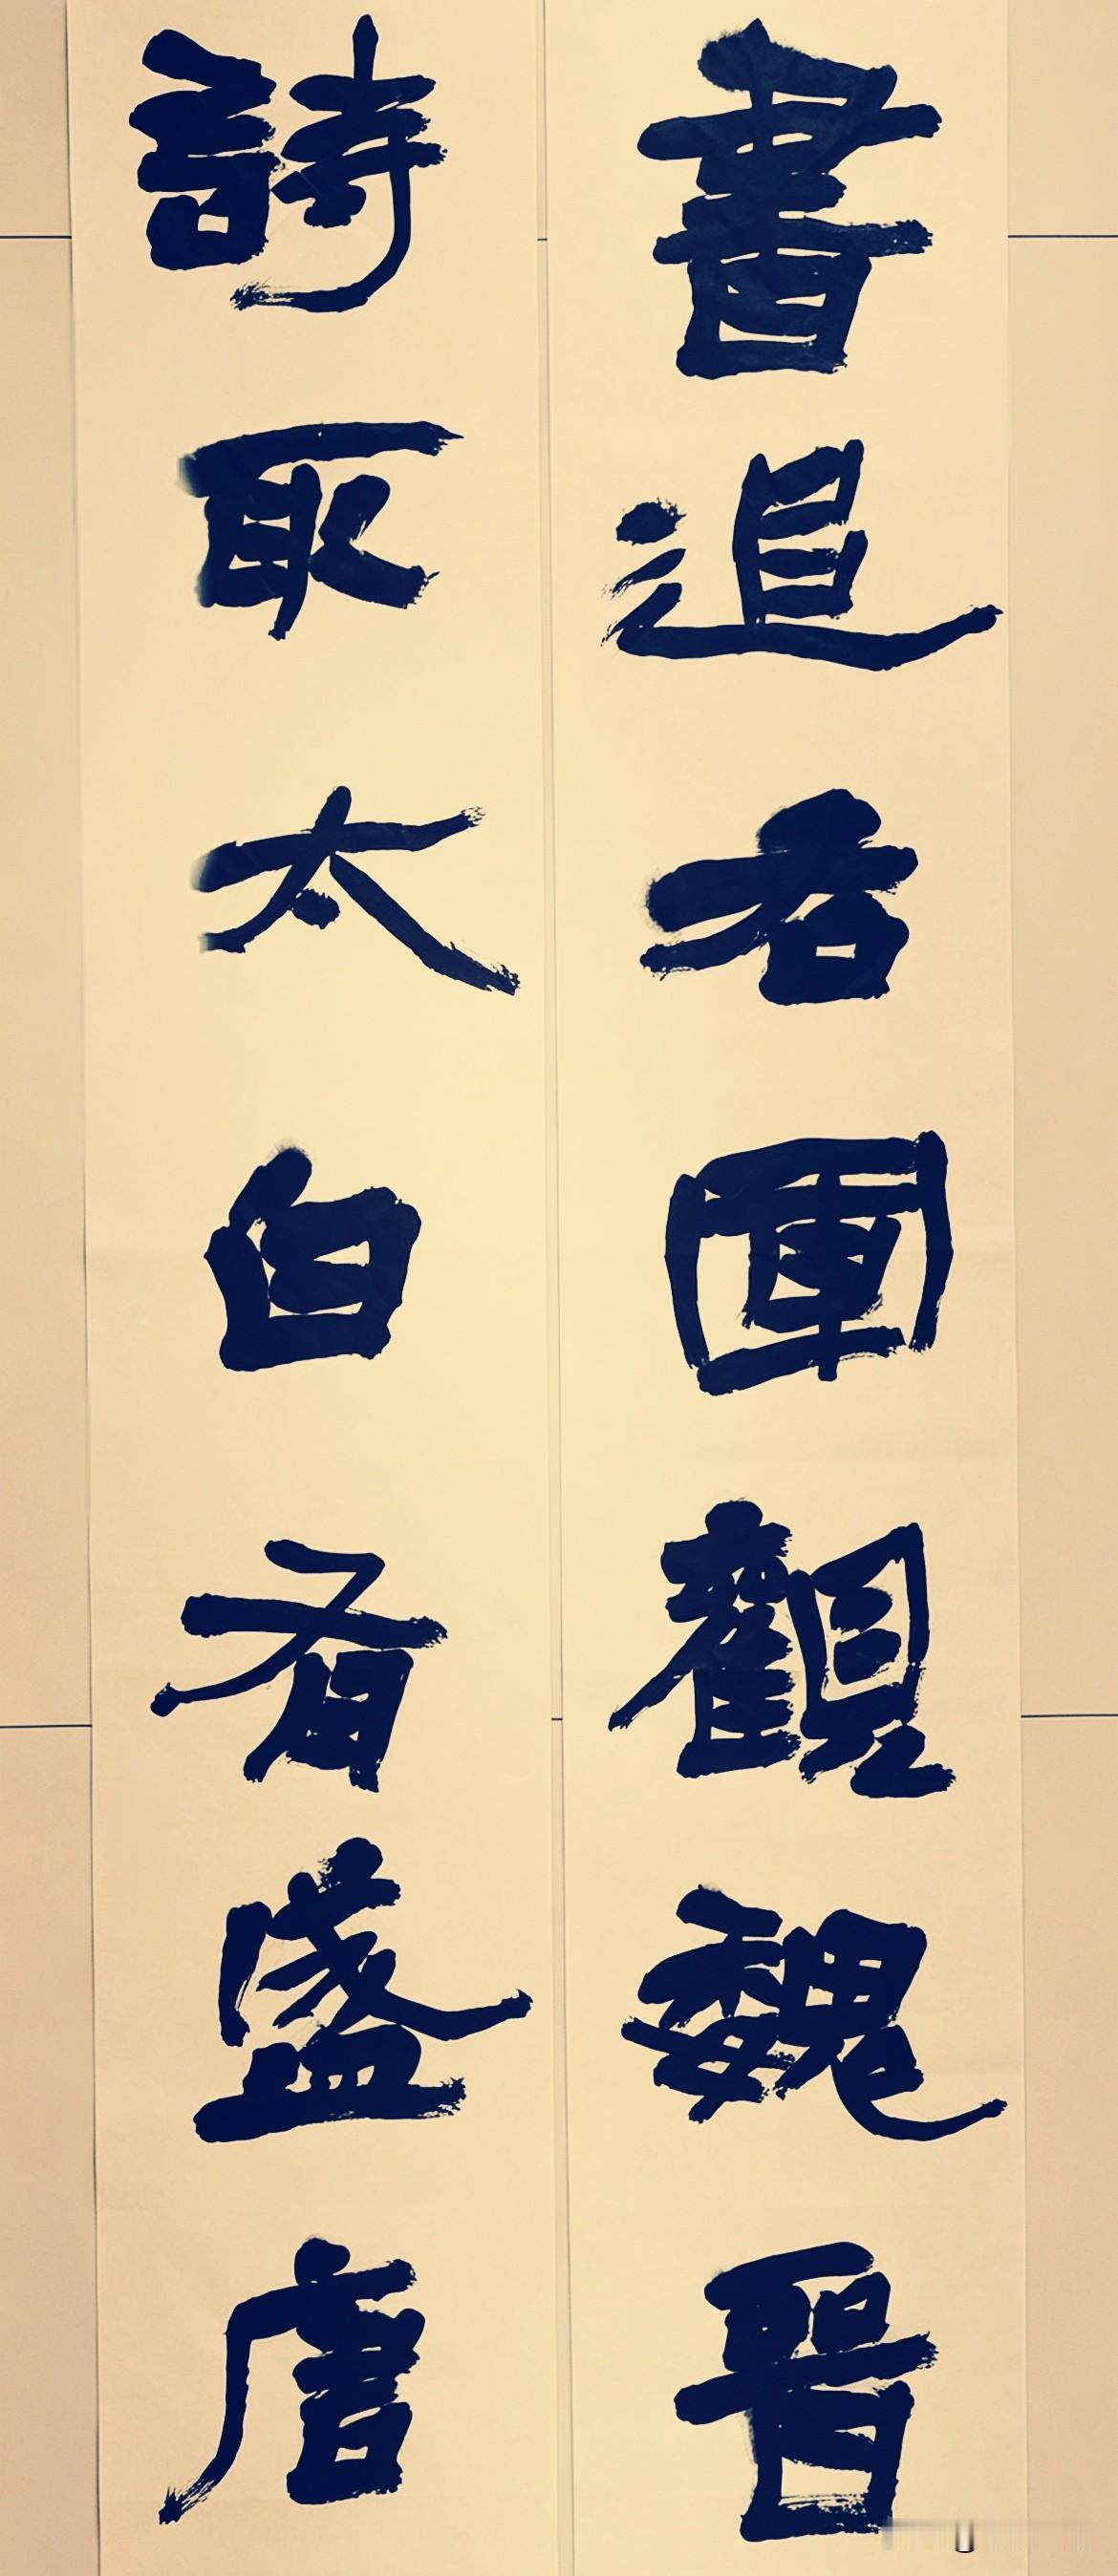 書追右軍觀魏晉
詩取太白看盛唐